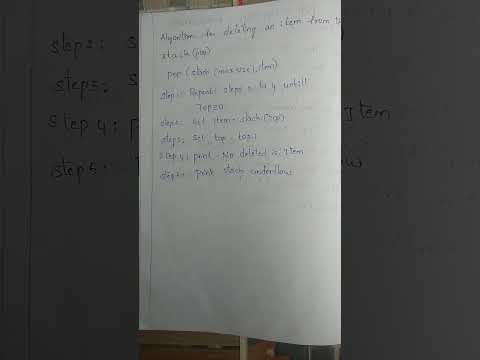 Algorithm for deleting an item from the
stack (pop)
pop (stack [max size], item)
step1: Repeat steps 2 to 4 until
Top≥0
step2: Set item = stack [Top]
step3: set top = top-1
step4: print, No deleted is Item
step5: print stack underflow